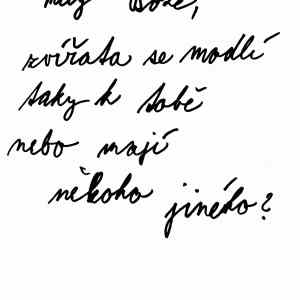 Bože,
zvířata se modlí
taky k tobě
nebo mají
někoho jiného?